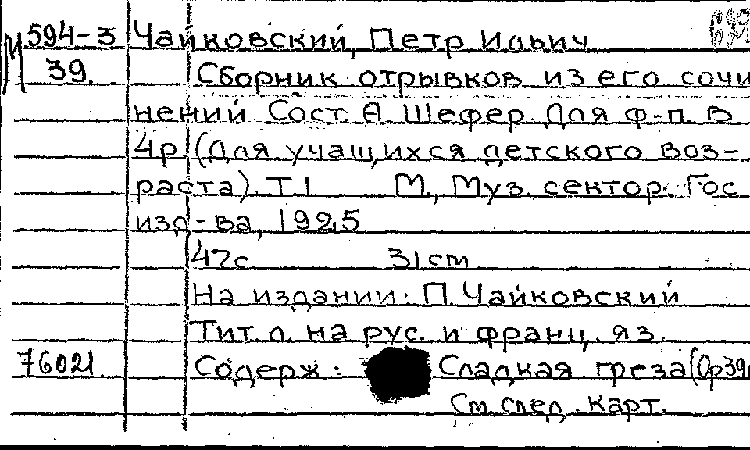 М 594-3 Чайковский, Петр Ильич
39. Сборник отрывков из его сочи
нений Сост. А. Шефер Для ф-п. в
4р (для учащихся детского воз-
раста). Т I М., Муз. сектор. Гос
изд-ва, 1925
47с 31 cm
На издании: П. Чайковский
Тит. л. на рус. и франц. яз.
76021. Содерж: Сладкая греза (Op39
См след. карт.